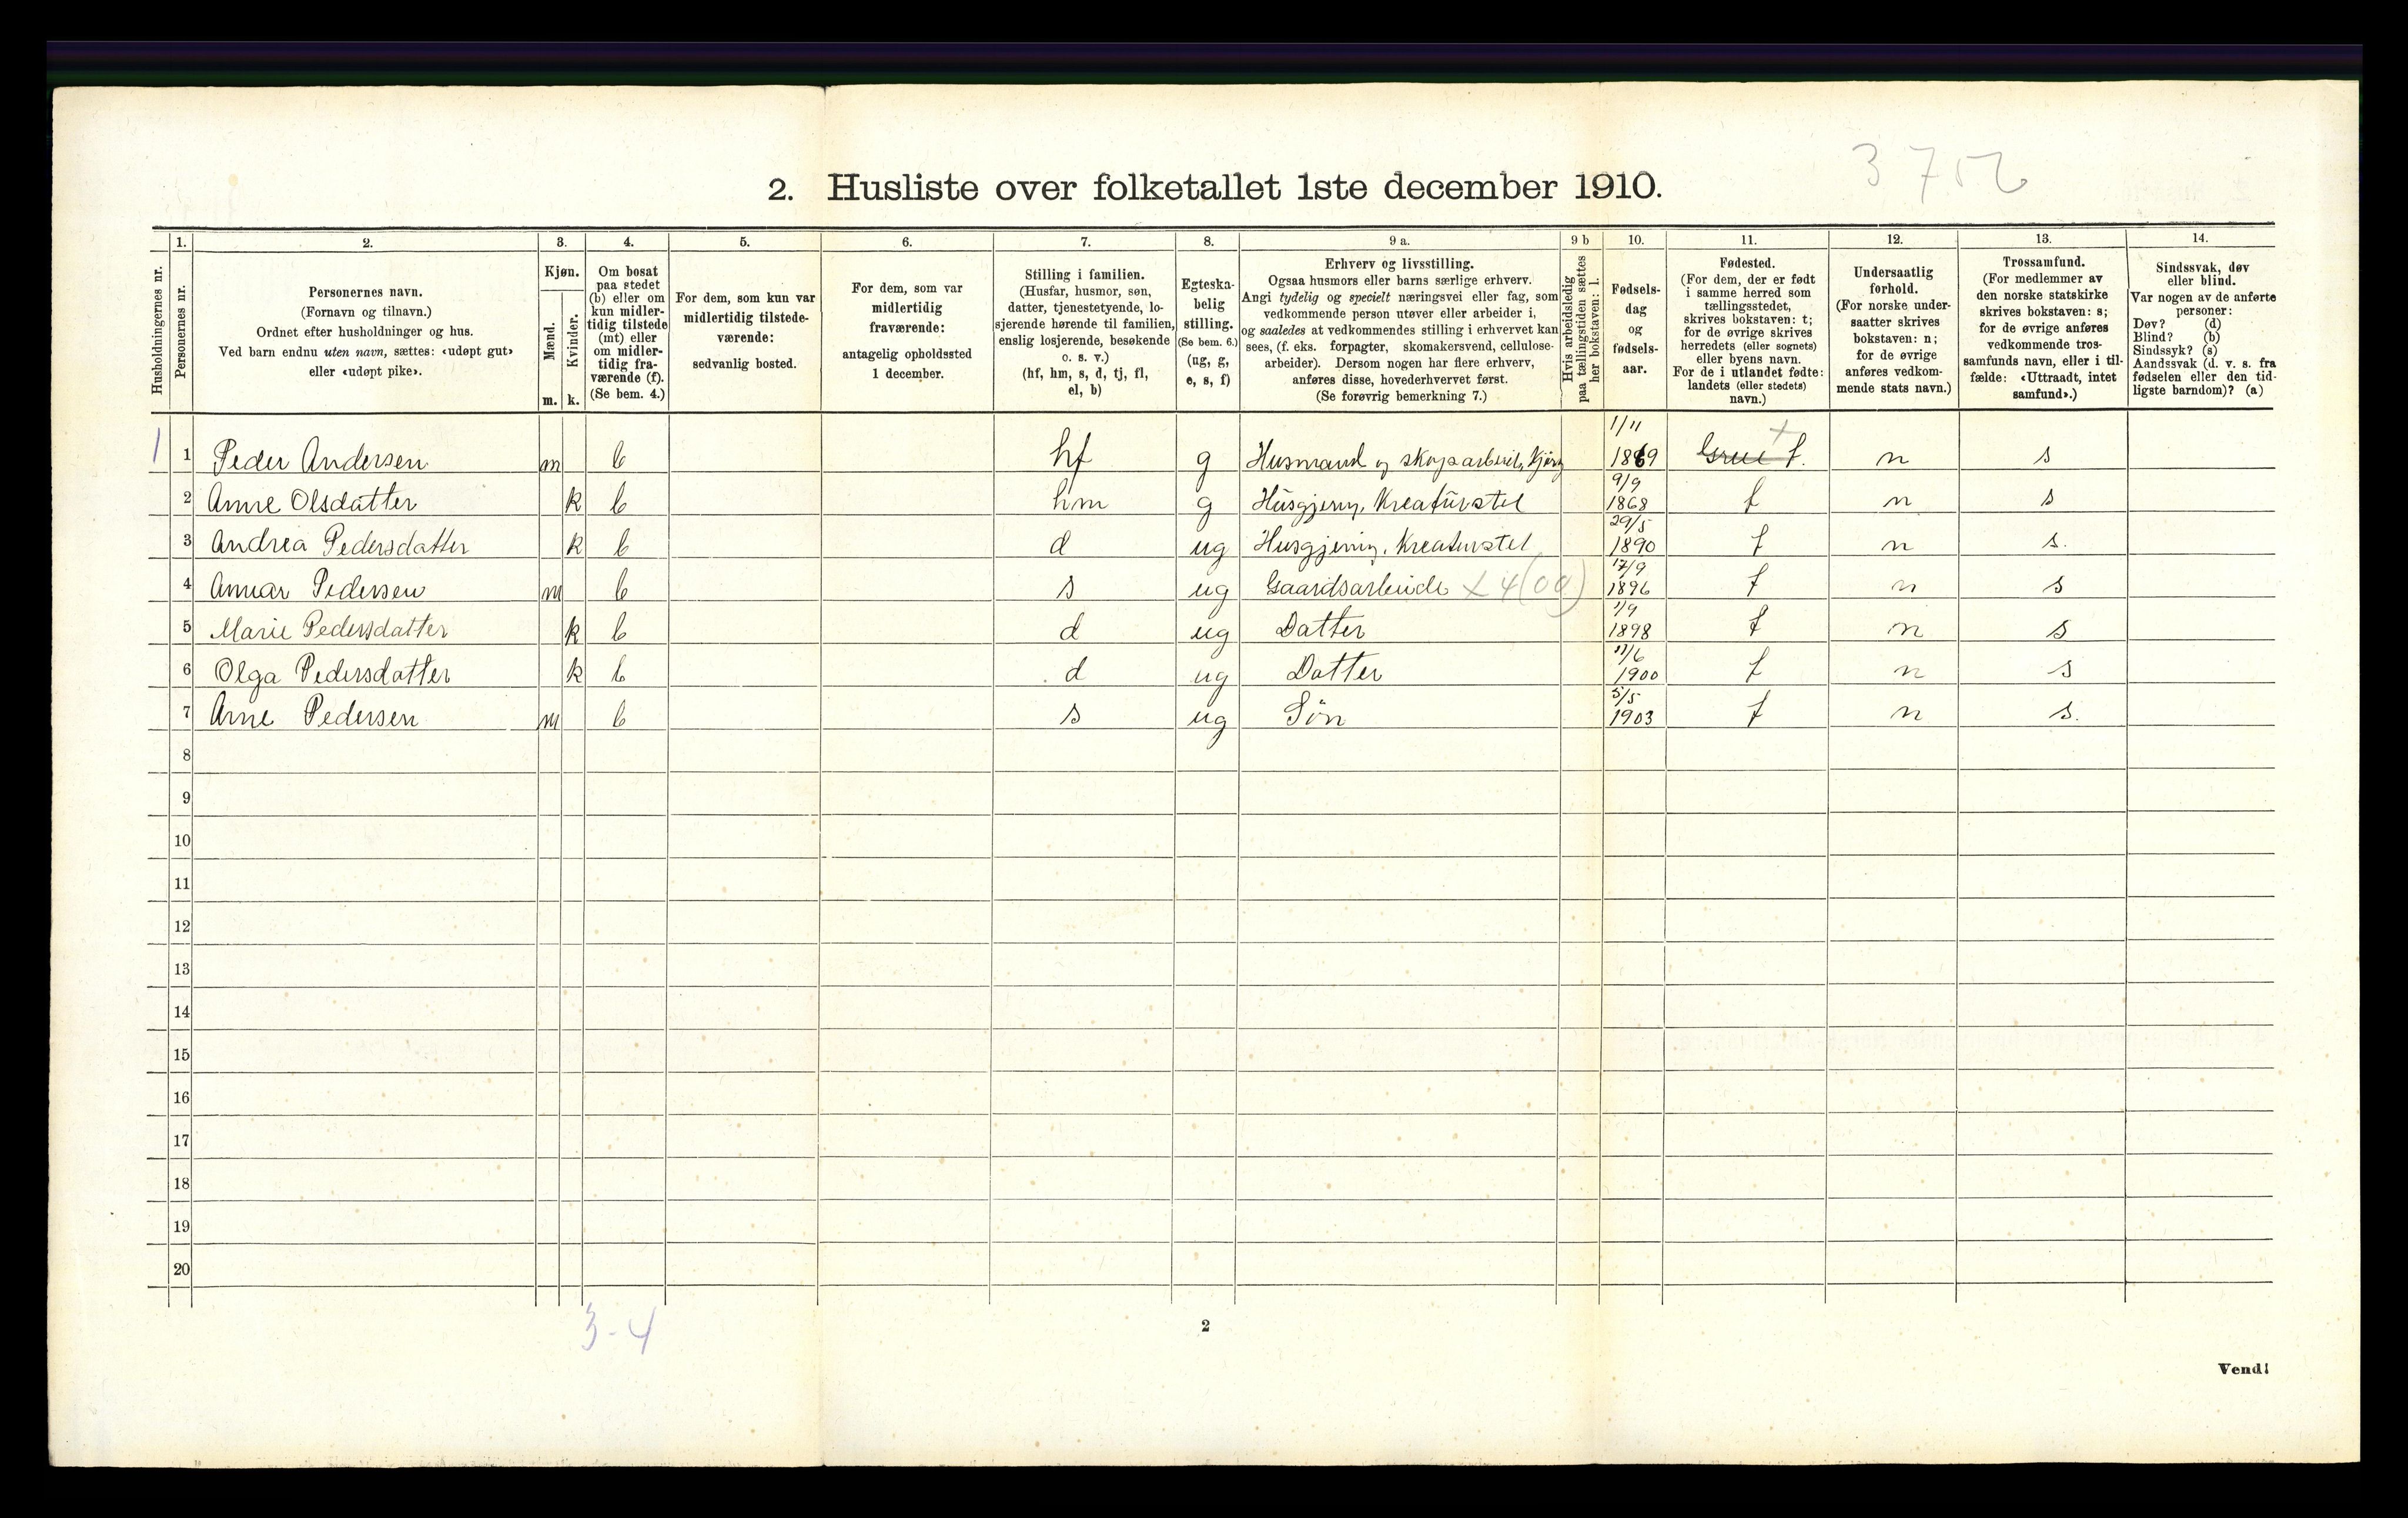 3752
2. Husliste over folketallet 1ste december 1910.
1. 2. 3. 4. 5. 6. 7. 8. 9 a. 9 b 10. 11. 12. 13. 14.
Husholdningernes nr.
Personernes nr.
Personernes navn.
(Fornavn og tilnavn.)
Ordnet efter husholdninger og hus.
Ved barn endnu uten navn, sættes: «udøpt gut»
eller «udøpt pike».
Kjøn.
Mænd.
Kvinder.
m. k.
Om bosat
paa stedet
(b) eller om
kun midler-
tidig tilstede
(mt) eller
om midler-
tidig fra-
værende (f).
(Se bem. 4.)
For dem, som kun var
midlertidig tilstede-
værende:
sedvanlig bosted.
For dem, som var
midlertidig
fraværende:
antagelig opholdssted
1 december.
Stilling i familien.
(Husfar, husmor, søn,
datter, tjenestetyende, lo-
sjerende hørende til familien,
enslig losjerende, besøkende
o. s. v.)
(hf, hm, s, d, tj, fl,
el, b)
Egteska-
belig
stilling.
(Se bem. 6.)
(ug, g,
e, s, f)
Erhverv og livsstilling.
Ogsaa husmors eller barns særlige erhverv.
Angi tydelig og specielt næringsvei eller fag, som
vedkommende person utøver eller arbeider i,
og saaledes at vedkommendes stilling i erhvervet kan
sees, (f. eks. forpagter, skomakersvend, cellulose-
arbeider). Dersom nogen har flere erhverv,
anføres disse, hovederhvervet først.
(Se forøvrig bemerkning 7.)
Hvis arbeidsledig
paa tællingstiden sættes
her bokstaven: l.
Fødsels-
dag
og
fødsels-
aar.
Fødested.
(For dem, der er født
i samme herred som
tællingsstedet,
skrives bokstaven: t;
for de øvrige skrives
herredets (eller sognets)
eller byens navn.
For de i utlandet fødte:
landets (eller stedets)
navn.)
Undersaatlig
forhold.
(For norske under-
saatter skrives
bokstaven: n;
for de øvrige
anføres vedkom-
mende stats navn.)
Trossamfund.
(For medlemmer av
den norske statskirke
skrives bokstaven: s;
for de øvrige anføres
vedkommende tros-
samfunds navn, eller i til-
fælde: «Uttraadt, intet
samfund».)
Sindssvak, døv
eller blind.
Var nogen av de anførte
personer:
Døv? (d)
Blind? (b)
Sindssyk? (s)
Aandssvak (d. v. s. fra
fødselen eller den tid-
ligste barndom)? (a)
1 1 Peder Andersen m b hf g Husmand og skogsarbeide, kjøring 1/11 1869 Grue t. n s
2 Anne Olsdatter k b hm g Husgjerning, Kreaturstel 9/9 1868 t n s
3 Andrea Pedersdatter k b d ug Husgjerning, Kreaturstel 29/5 1890 t n s.
4 Annar Pedersen m b s ug Gaardsarbeide x4(00) 17/9 1896 t n s
5 Marie Pedersdatter k b d ug Datter 1/9 1898 t n s
6 Olga Pedersdatter k b d ug Datter 11/6 1900 t n s
7 Arne Pedersen m b s ug Søn 5/5 1903 t n s.
8
9
10
11
12
13
14
15
16
17
18
19
20
3-4
2
Vend!